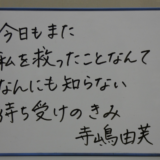 今日もまた
私を救ったことなんて
なんにも知らない
待ち受けのきみ
寺嶋由芙